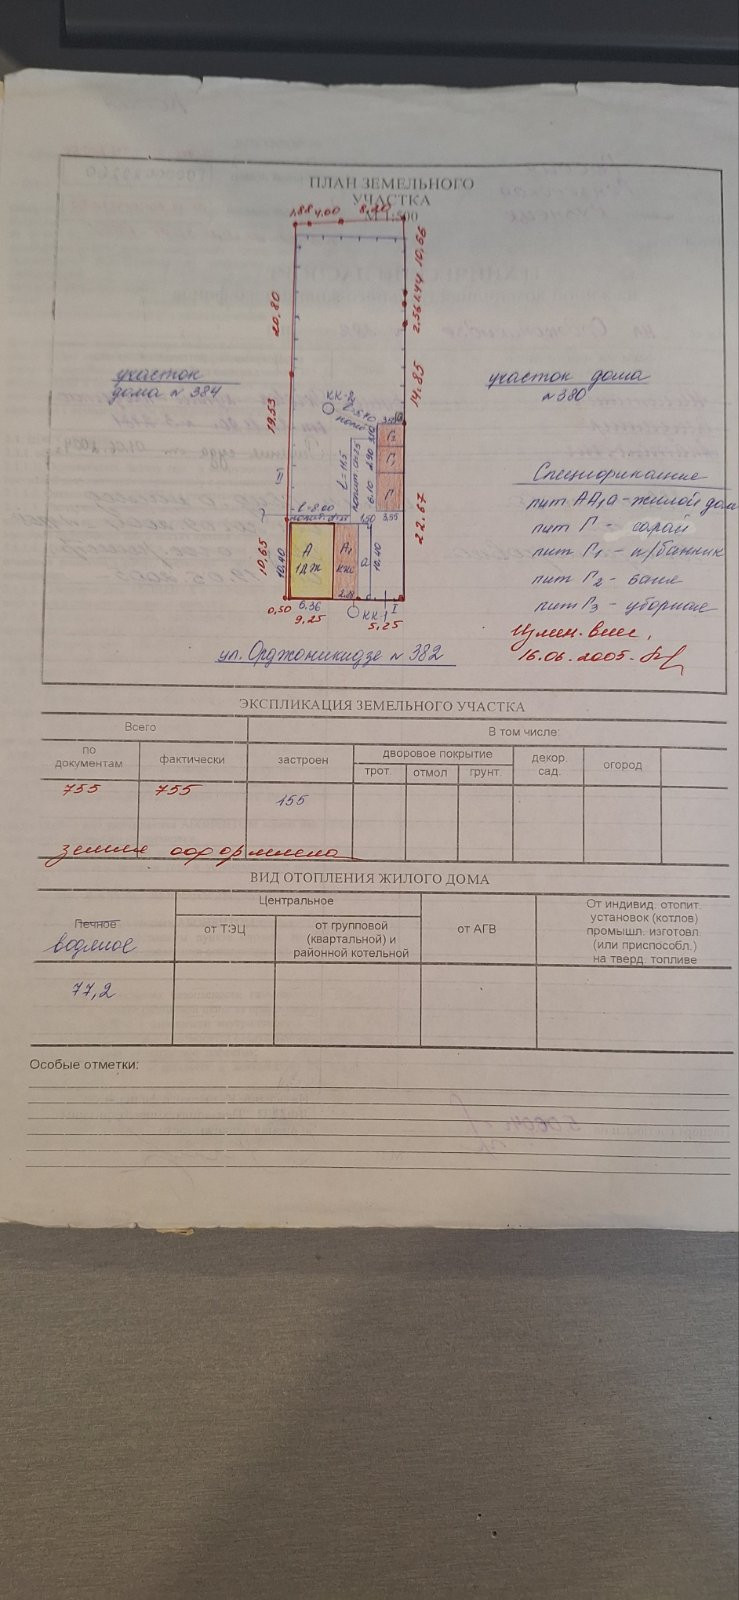 ПЛАН ЗЕМЕЛЬНОГО
УЧАСТКА
М 1:500
1,88 4,00 8,20
10,66
1,44
2,56
20,80
14,85
участок
дома № 384
участок дома
№ 380
КК-2
19,53
Г2
Г1
Г
l=11,5
2,90
6,10
3,95
22,67
II
l=8,00
1,50
10,65
10,40
А
1Дж
А1
кнс
а
10,40
0,50
6,36
9,25
КК-1
I
5,25
Спецификация
лит АА1а - жилой дом
лит Г - сарай
лит Г1 - п/банник
лит Г2 - баня
лит Г3 - уборная
Измен. внес.
16.06.2005.
ул. Орджоникидзе № 382
ЭКСПЛИКАЦИЯ ЗЕМЕЛЬНОГО УЧАСТКА
Всего
В том числе:
по
документам
фактически
застроен
дворовое покрытие
трот.
отмол
грунт.
декор.
сад.
огород
755
755
155
земля оформлена
ВИД ОТОПЛЕНИЯ ЖИЛОГО ДОМА
Печное
водяное
Центральное
от ТЭЦ
от групповой
(квартальной) и
районной котельной
от АГВ
От индивид. отопит.
установок (котлов)
промышл. изготовл.
(или приспособл.)
на тверд. топливе
77,2
Особые отметки: